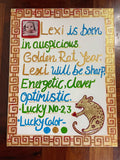 Lexi is born
in auspicious
Golden Rat Year.
Lexi will be Sharp
Energetic, Clever
Optimistic.
Lucky No-2,3
Lucky Color-